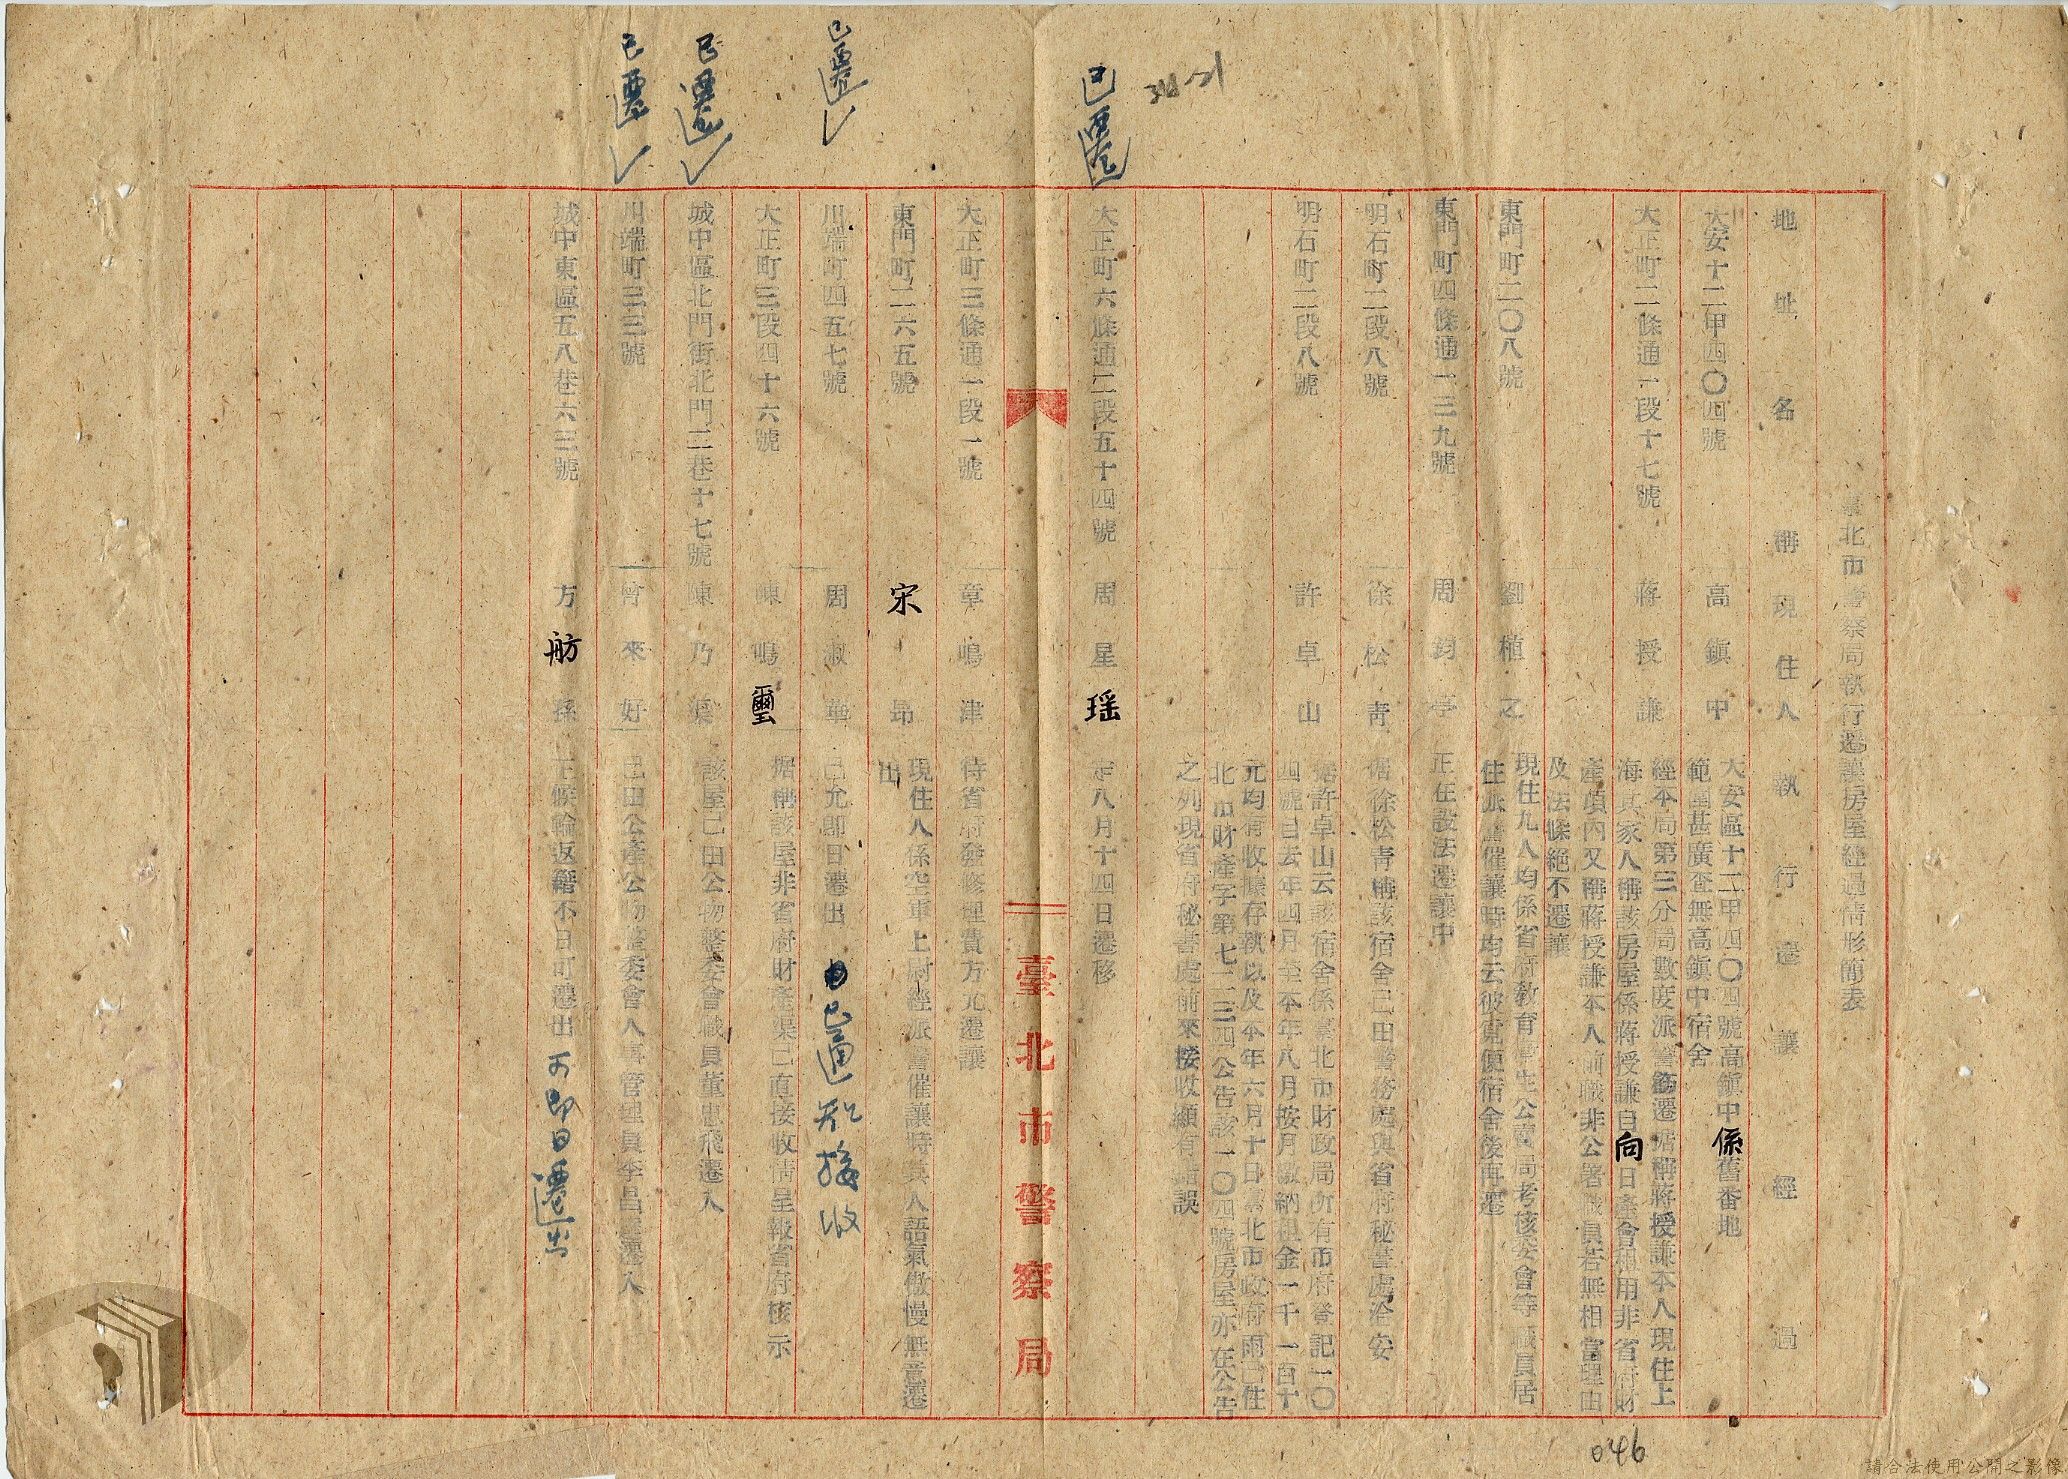 臺北市警察局執行遷讓房屋經過情形簡表
地址名稱 現住人 執行遷讓經過
大安十二甲四〇四號 高鎮中 大安區十二甲四〇四號高鎮中係舊番地
範圍甚廣查無高鎮中宿舍
大正町二條通一段十七號 蔣授謙 經本局第三分局數度派警飭遷據稱蔣授謙本人現住上
海其家人稱該房屋係蔣授謙自向日產會租用非省府財
產項內又稱蔣授謙本人前職非公署職員若無相當理由
及法條絕不遷讓
東門町二〇八號 劉植之 現住九人均係省府教育衛生公賣局考核委會等職員居
住派警催讓時均云彼覓便宿舍後再遷
東門町四條通一三九號 周鈞亭 正在設法遷讓中
明石町二段八號 徐松青 据徐松青稱該宿舍已由警務處與省府秘書處洽安
明石町二段八號 許卓山 据許卓山云該宿舍係臺北市財政局所有市府登記一〇
四號自去年四月至本年八月按月繳納租金一千一百十
元均有收據存執以及本年六月十日臺北市政府住
北市財產字第七二三四公告該一〇四號房屋亦在公告
之列現省府秘書處前來接收顯有錯誤
大正町六條通二段五十四號 周星瑶 定八月十四日遷移
已遷
34-21
臺北市警察局
大正町三條通一段一號 章鳴津 待省府發修理費方允遷讓
東門町二六五號 宋昴 現住人係空軍上尉經派警催讓時其人語氣傲慢無意遷
出
川端町四五七號 周淑華 已允即日遷出 已通知接收
已遷✓
大正町三段四十六號 陳鳴璽 据稱該屋非省府財產渠已直接收情呈報省府核示
城中區北門街北門二巷十七號 陳乃渠 該屋已由公物整委會職員董忠飛遷入
已遷✓
川端町三三號 曾來好 已由公產公物整委會人事管理員李昌遷入
已遷✓
城中東區五八巷六三號 方舫孫 正候輪返籍不日可遷出 可即日遷出
046
請合法使用公開之影像